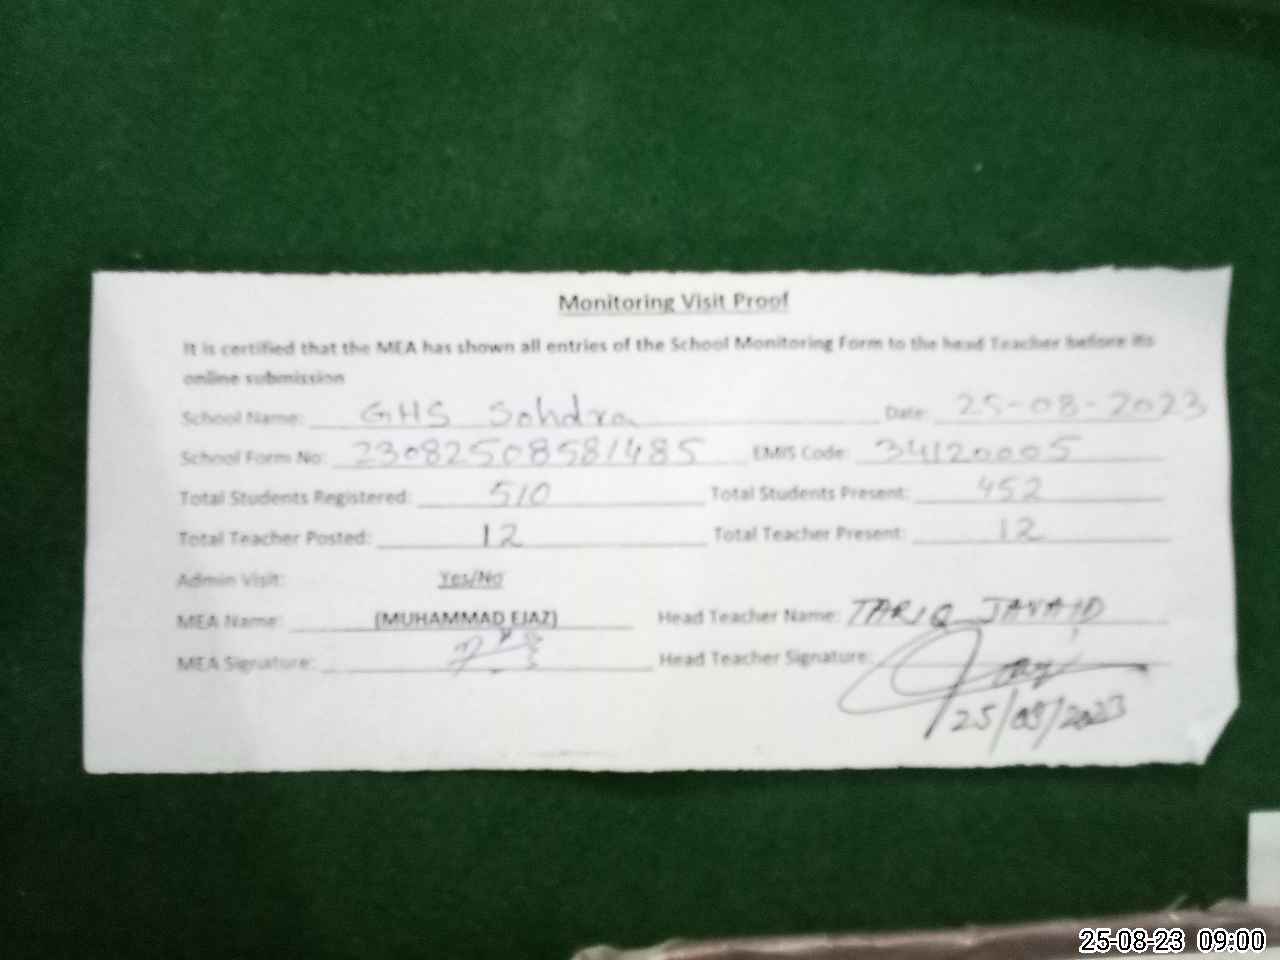 Monitoring Visit Proof
It is certified that the MEA has shown all entries of the School Monitoring Form to the head Teacher before its
online submission
School Name: GHS Sohdra Date: 25-08-2023
School Form No: 23082508581485 EMIS Code: 34120005
Total Students Registered: 510 Total Students Present: 452
Total Teacher Posted: 12 Total Teacher Present: 12
Admin Visit: Yes/No
MEA Name: (MUHAMMAD EJAZ) Head Teacher Name: TARIQ JAVAID
MEA Signature: Head Teacher Signature:
25/08/2023
25-08-23 09:00